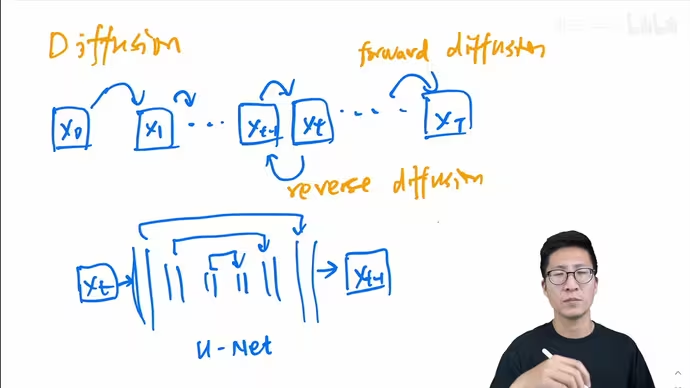 Diffusion
forward diffusion
X0 X1 ... Xt-1 Xt ... XT
reverse diffusion
Xt Xt-1
U-Net